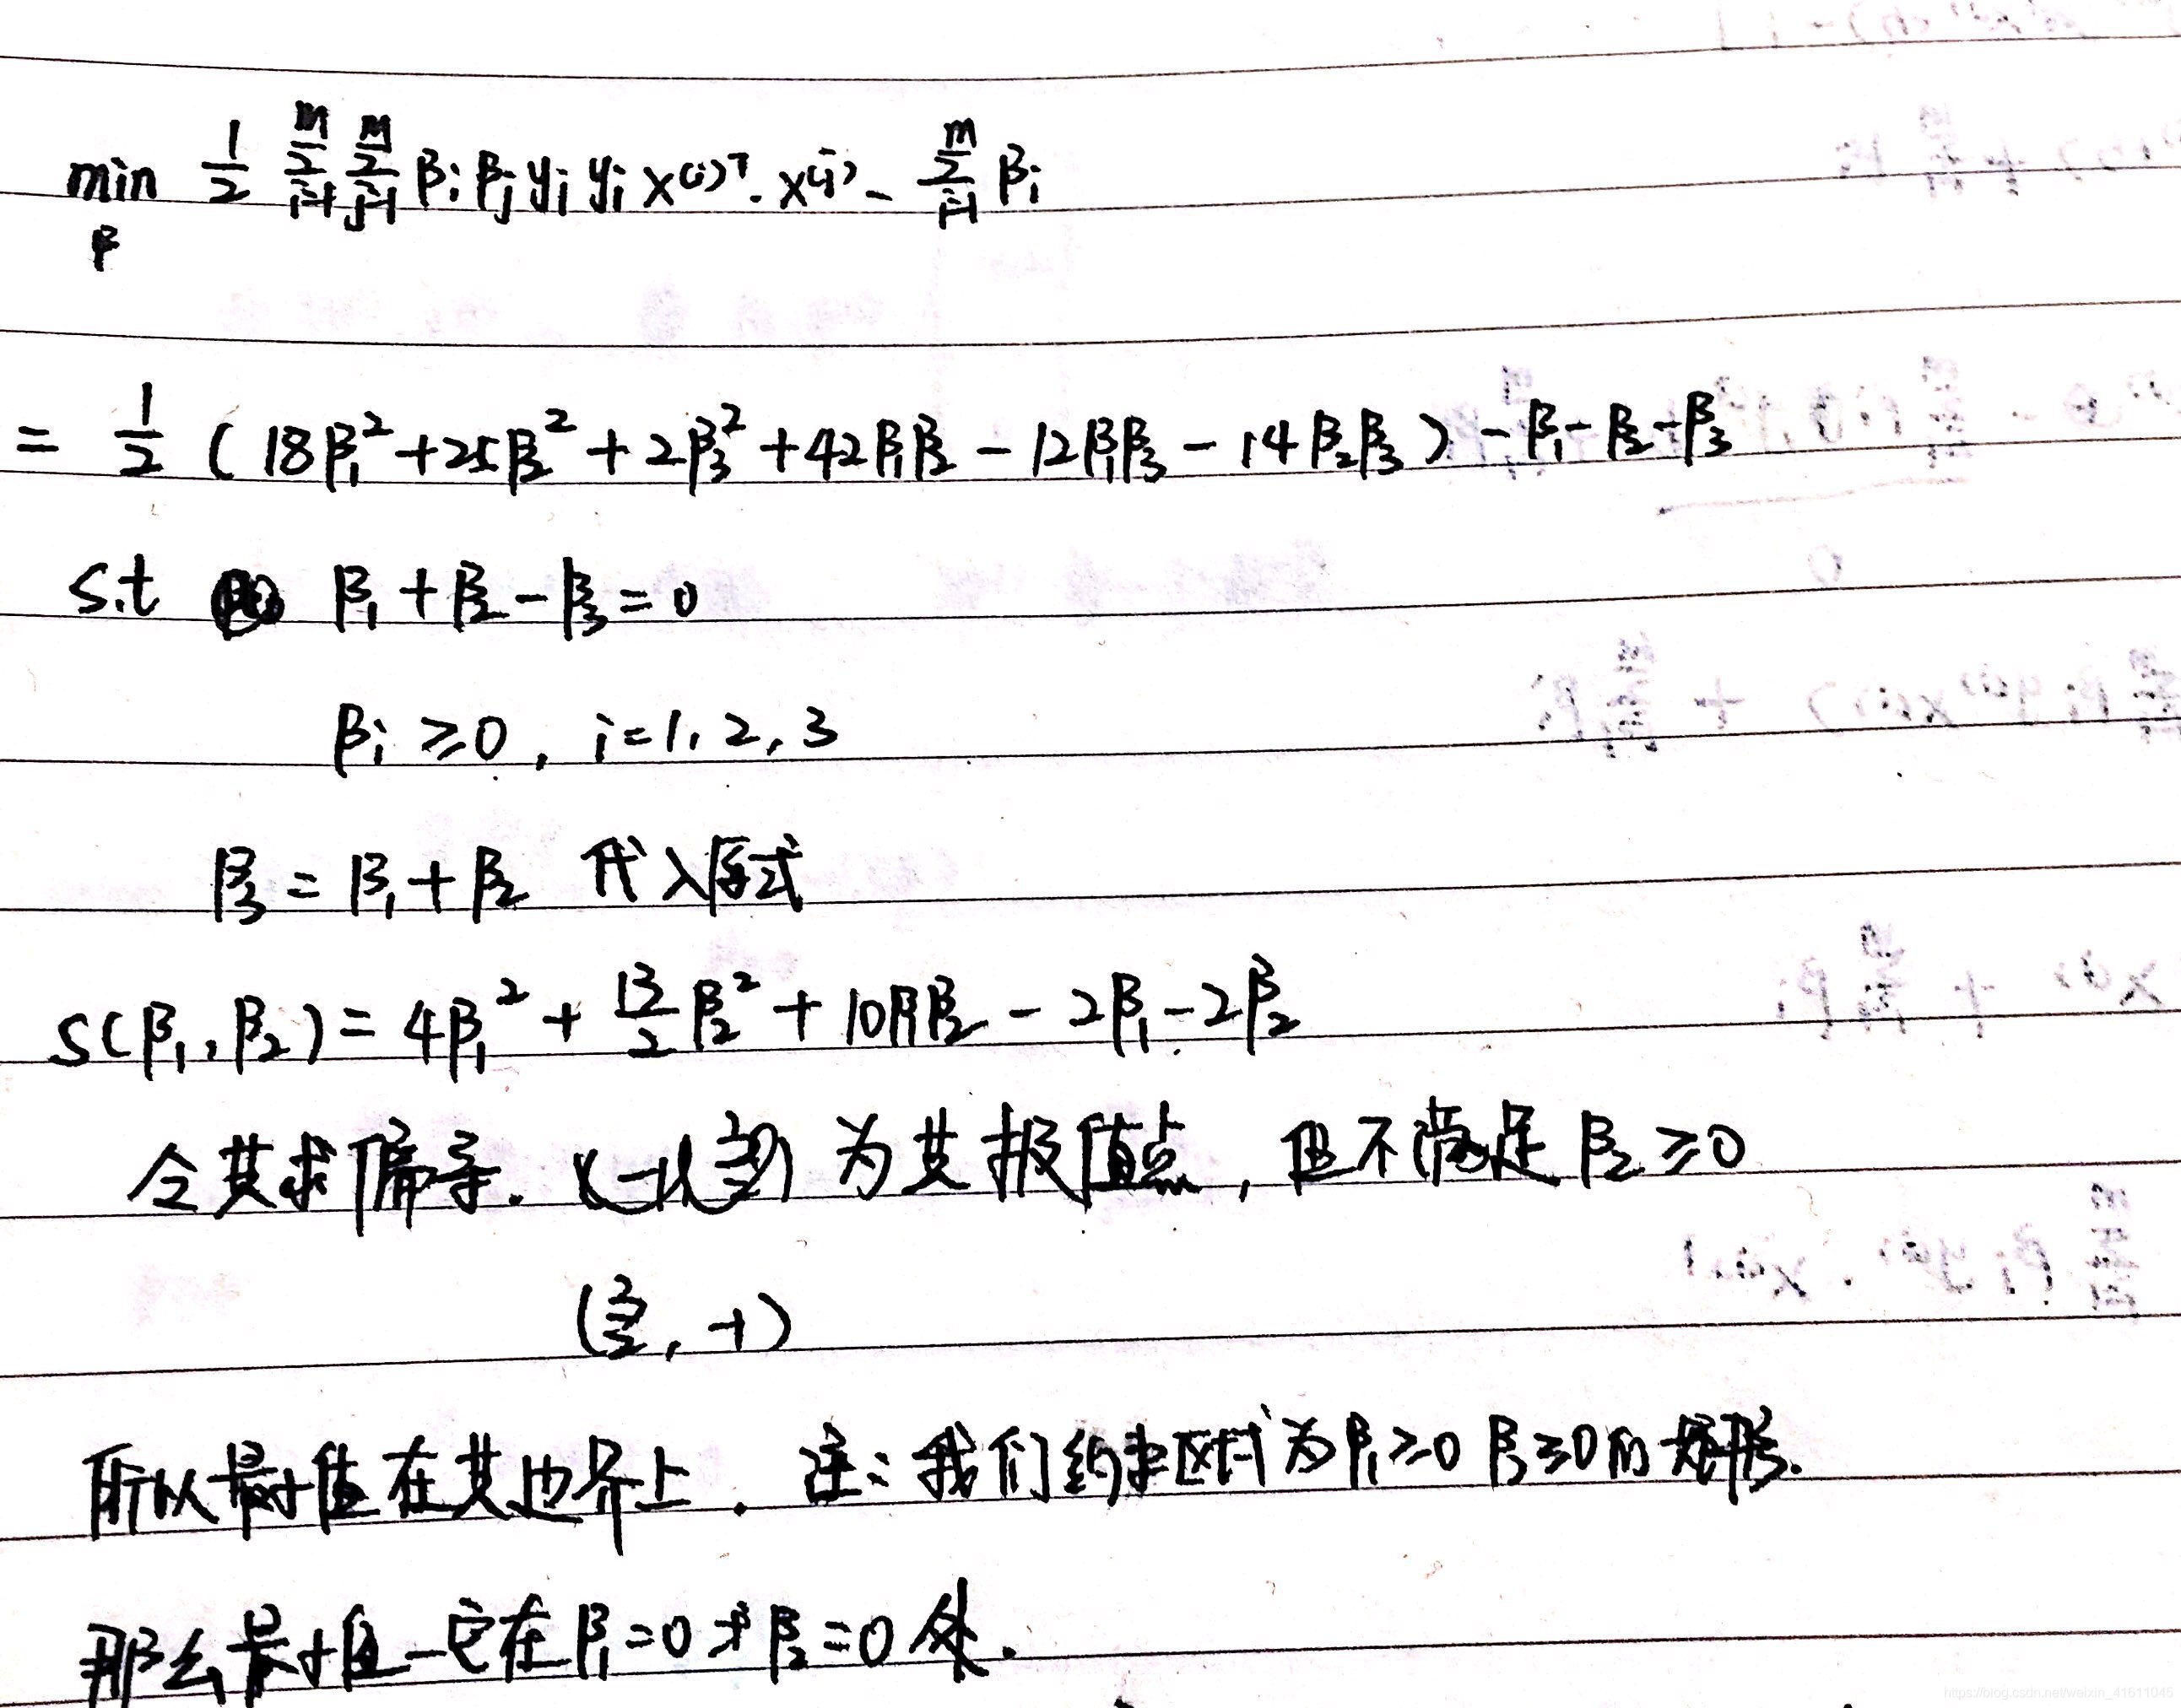 min 1/2 Σ_{i=1}^{m} Σ_{j=1}^{m} βi βj yi yj x⁽ⁱ⁾ᵀ · x⁽ʲ⁾ - Σ_{i=1}^{m} βi
β
= 1/2 ( 18β₁² + 25β₂² + 2β₃² + 42β₁β₂ - 12β₁β₃ - 14β₂β₃ ) - β₁ - β₂ - β₃
s.t β₁ + β₂ - β₃ = 0
βi ≥ 0 , i = 1, 2, 3
β₃ = β₁ + β₂ 代入原式
S(β₁, β₂) = 4β₁² + 13/2 β₂² + 10β₁β₂ - 2β₁ - 2β₂
令其求偏导. 为其极值点, 但不满足 β₂ ≥ 0
(3/2, -1)
所以最小值在其边界上. 注: 我们约束区域为 β₁ ≥ 0 β₂ ≥ 0 的矩形.
那么最小值一定在 β₁ = 0 或 β₂ = 0 处.
https://blog.csdn.net/weixin_41611045